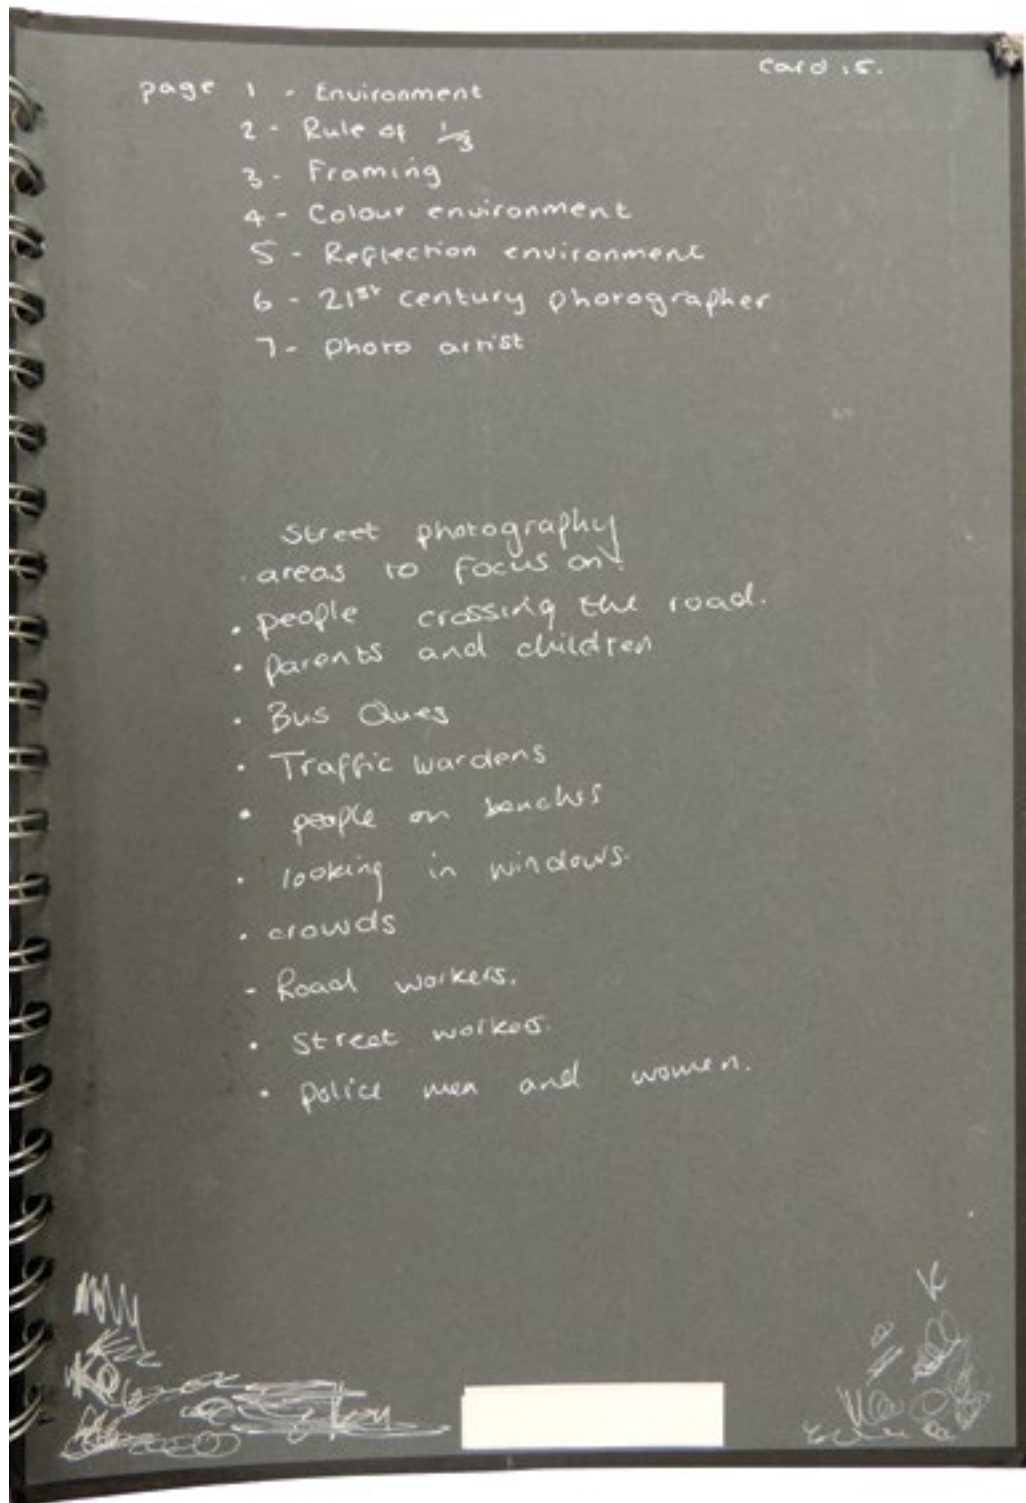 card 15.
page 1 - Environment
2 - Rule of 1/3
3 - Framing
4 - Colour environment
5 - Reflection environment
6 - 21st century photographer
7 - photo artist
Street photography
· areas to focus on:
· people crossing the road.
· parents and children
· Bus Ques
· Traffic wardens
· people on benches
· looking in windows.
· crowds
- Road workers.
· Street workers.
· police men and women.